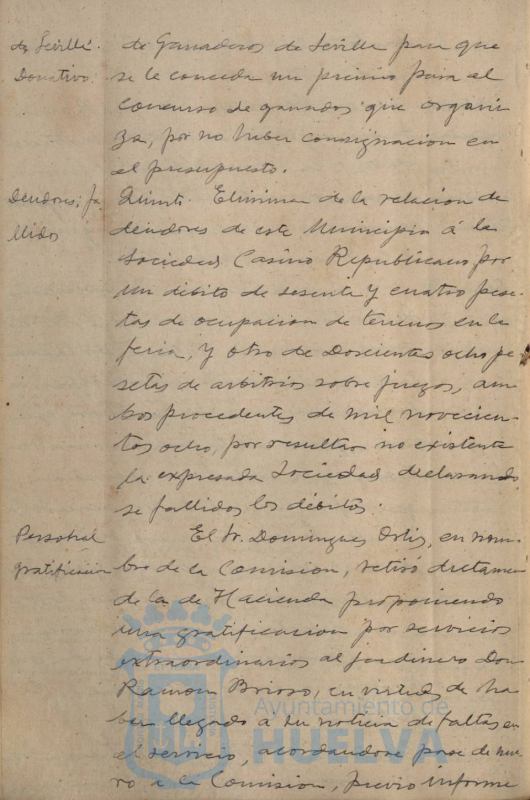 de Sevilla.
Donativo.
de Ganaderos de Sevilla para que
se le conceda un premio para el
Concurso de ganados que organi
za, por no haber consignacion en
el presupuesto.
Deudores; fa
llidos
Quinto. Eliminar de la relacion de
deudores de este Municipio á la
Sociedad Casino Republicano por
un débito de sesenta y cuatro pese
tas de ocupacion de terrenos en la
feria, y otro de Doscientas ocho pe
setas de arbitrios sobre juegos, am
bos procedentes de mil novecien
tos ocho, por resultar no existente
la expresada Sociedad declarando
se fallidos los débitos.
Personal
gratificacion
El Sr. Dominguez Ortiz, en nom
bre de la Comision, retiró dictamen
de la de Hacienda proponiendo
una gratificacion por servicios
extraordinarios al jardinero Don
Ramon Brioso, en virtud de ha
ber llegado a su noticia de faltas en
el servicio, acordandose pase de nue
vo a la Comision, previo informe
Ayuntamiento de
HUELVA